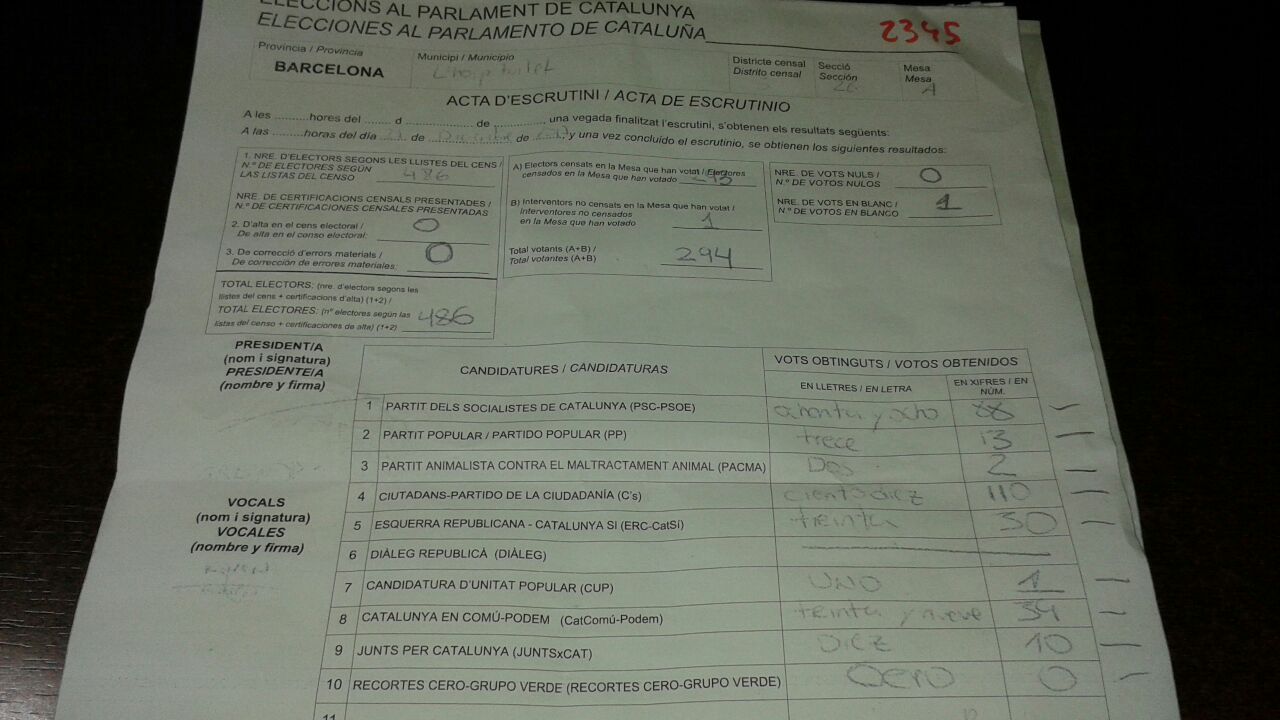 ELECCIONS AL PARLAMENT DE CATALUNYA
ELECCIONES AL PARLAMENTO DE CATALUÑA
2345
Província / Provincia
BARCELONA
Municipi / Municipio
L'hospitalet
Districte censal
Distrito censal
Secció
Sección
Mesa
Mesa
A
ACTA D'ESCRUTINI / ACTA DE ESCRUTINIO
A les ...........hores del ........ d ........................ de ................, una vegada finalitzat l'escrutini, s'obtenen els resultats següents:
A las ..........horas del día 21 de Diciembre de 2017, y una vez concluido el escrutinio, se obtienen los siguientes resultados:
1. NRE. D'ELECTORS SEGONS LES LLISTES DEL CENS /
N.º DE ELECTORES SEGÚN
LAS LISTAS DEL CENSO 486
NRE. DE CERTIFICACIONS CENSALS PRESENTADES /
N.º DE CERTIFICACIONES CENSALES PRESENTADAS
2. D'alta en el cens electoral /
De alta en el censo electoral: 0
3. De correcció d'errors materials /
De corrección de errores materiales: 0
TOTAL ELECTORS: (nre. d'electors segons les
llistes del cens + certificacions d'alta) (1+2) /
TOTAL ELECTORES: (nº electores según las
listas del censo + certificaciones de alta) (1+2) 486
A) Electors censats en la Mesa que han votat / Electores
censados en la Mesa que han votado 293
B) Interventors no censats en la Mesa que han votat /
Interventores no censados
en la Mesa que han votado 1
Total votants (A+B) /
Total votantes (A+B) 294
NRE. DE VOTS NULS /
N.º DE VOTOS NULOS 0
NRE. DE VOTS EN BLANC /
N.º DE VOTOS EN BLANCO 1
PRESIDENT/A
(nom i signatura)
PRESIDENTE/A
(nombre y firma)
VOCALS
(nom i signatura)
VOCALES
(nombre y firma)
CANDIDATURES / CANDIDATURAS
VOTS OBTINGUTS / VOTOS OBTENIDOS
EN LLETRES / EN LETRA
EN XIFRES / EN
NÚM.
1 PARTIT DELS SOCIALISTES DE CATALUNYA (PSC-PSOE) ochenta y ocho 88
2 PARTIT POPULAR / PARTIDO POPULAR (PP) trece 13
3 PARTIT ANIMALISTA CONTRA EL MALTRACTAMENT ANIMAL (PACMA) Dos 2
4 CIUTADANS-PARTIDO DE LA CIUDADANÍA (C's) ciento diez 110
5 ESQUERRA REPUBLICANA - CATALUNYA SI (ERC-CatSí) treinta 30
6 DIÀLEG REPUBLICÀ (DIÀLEG)
7 CANDIDATURA D'UNITAT POPULAR (CUP) UNO 1
8 CATALUNYA EN COMÚ-PODEM (CatComú-Podem) treinta y nueve 39
9 JUNTS PER CATALUNYA (JUNTSxCAT) DIEZ 10
10 RECORTES CERO-GRUPO VERDE (RECORTES CERO-GRUPO VERDE) Cero 0
11